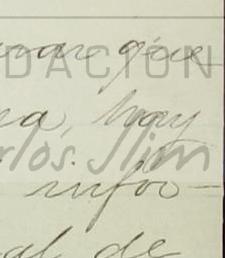 que
DACIÓN
a, hay
rlos Slim
infor-
al de